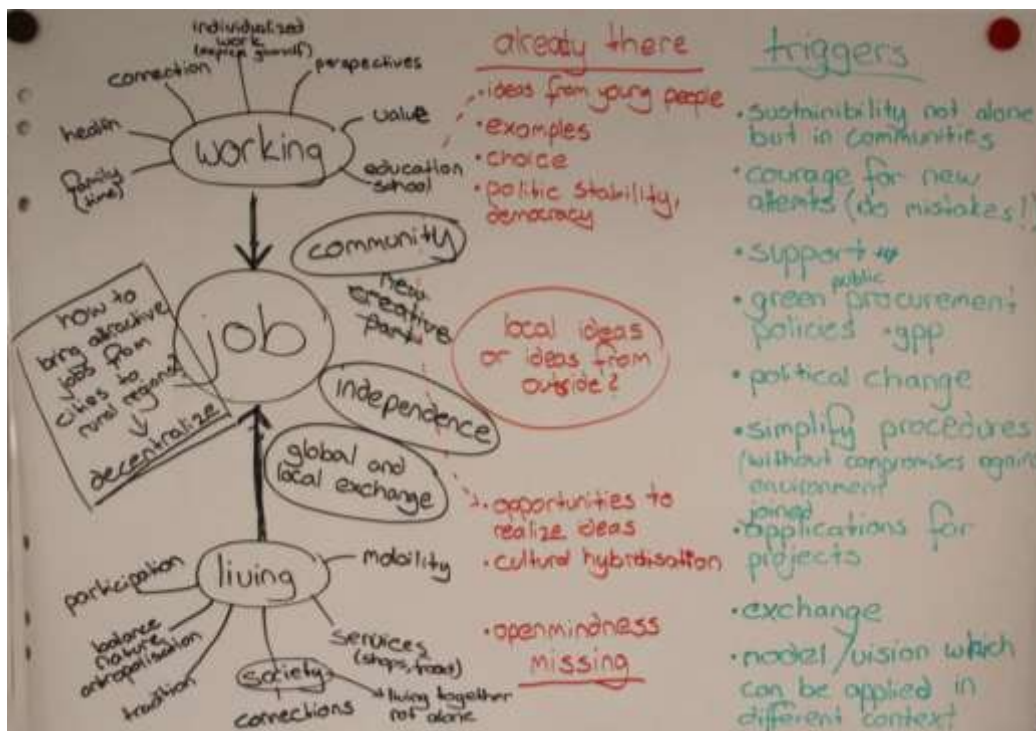 individualized
work
connection
perspectives
health
value
working
family
(time)
education
school
community
new
creative
job
how to
bring attractive
jobs from
cities to
rural regions?
decentralize
independence
global and
local exchange
living
mobility
participation
balance
nature
tradition
services
society
living together
not alone
connections
already there
• ideas from young people
• examples
• choice
• politic stability,
democracy
local ideas
or ideas from
outside?
• opportunities to
realize ideas
• cultural hybridisation
• openmindness
missing
triggers
• sustainibility not alone
but in communities
• courage for new
(do mistakes!!)
• support
public
• green procurement
policies • gpp
• political change
• simplify procedures
(without compromises
environment
joined
• applications for
projects
• exchange
• model/vision which
can be applied in
different context